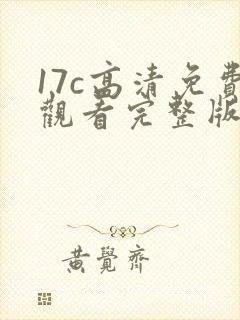 17c高清免費
觀看完整版
黃覺齊